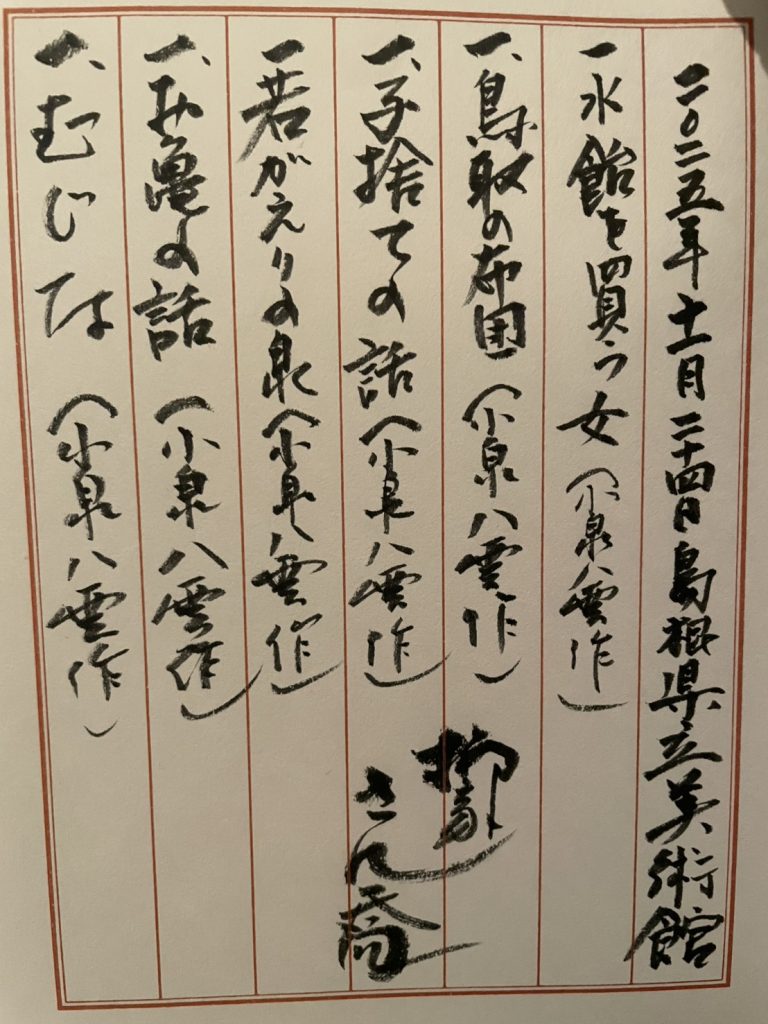 二〇二五年十一月二十四日島根県立美術館
一水飴を買う女（小泉八雲作）
一、鳥取の布団（小泉八雲作）
一、子捨ての話（小泉八雲作）
一若がえりの泉（小泉八雲作）
一、お亀の話（小泉八雲作）
一、むじな（小泉八雲作）
柳家
さん喬